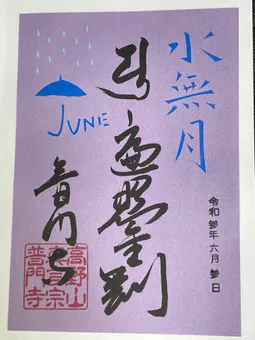 水無月
令和參年六月參日
遍照金剛
JUNE
普門寺
高野山
真言宗
普門寺